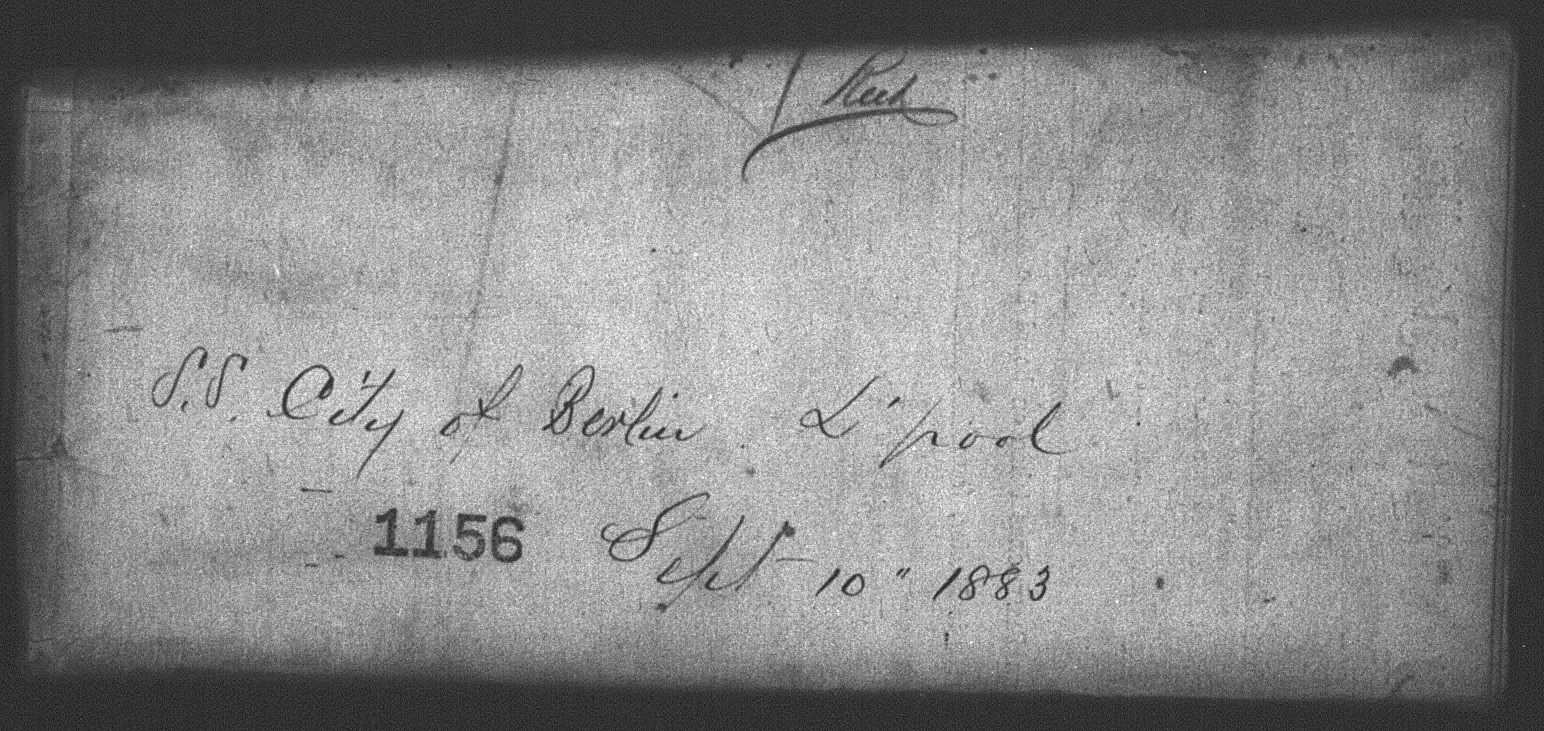 S.S. City of Berlin L'pool
1156 Sept 10" 1883